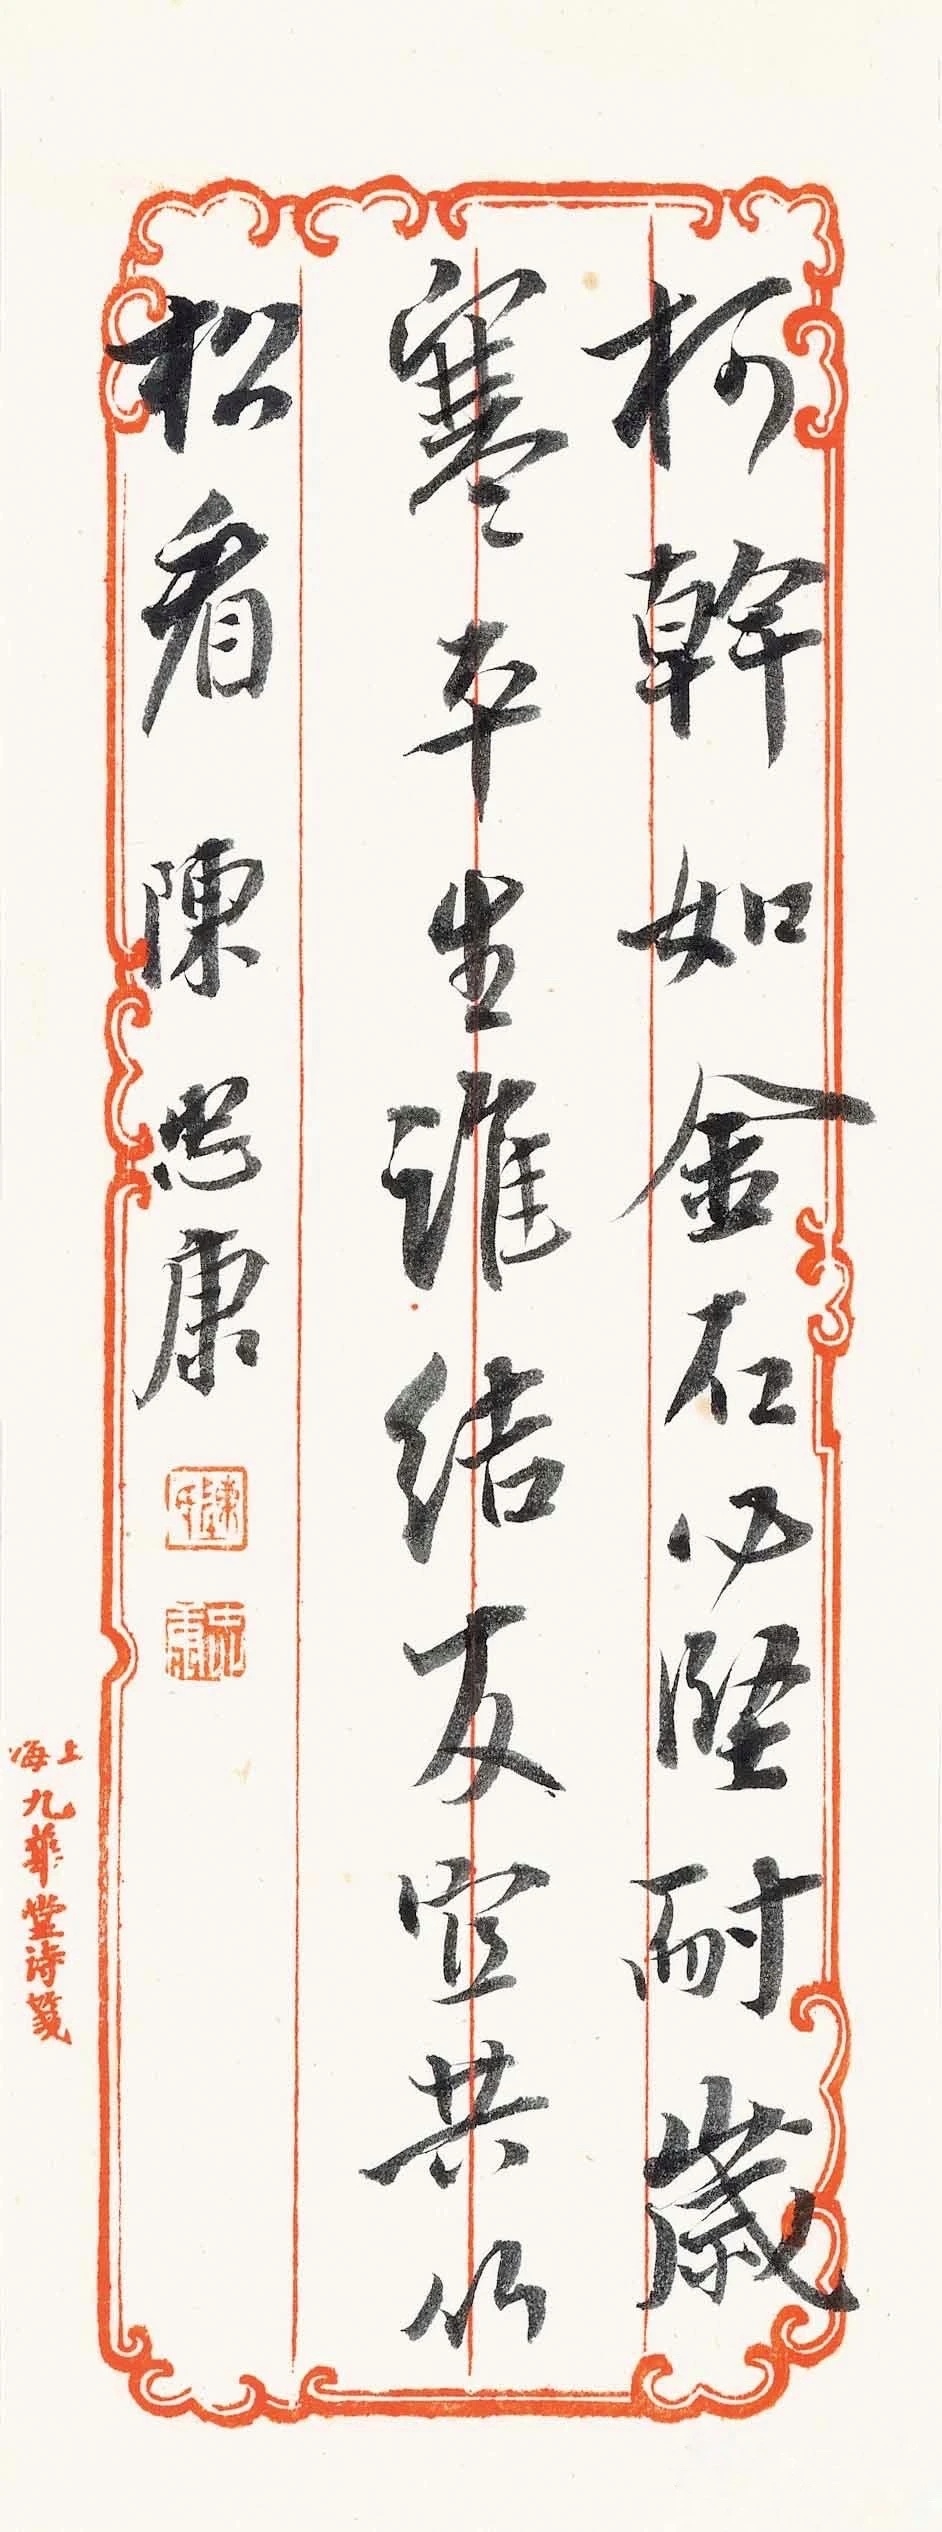 柯幹如金石心堅耐歲
寒平生誰結友宜共竹
松看 陳忠康
陳氏
忠康
上海九華堂詩箋